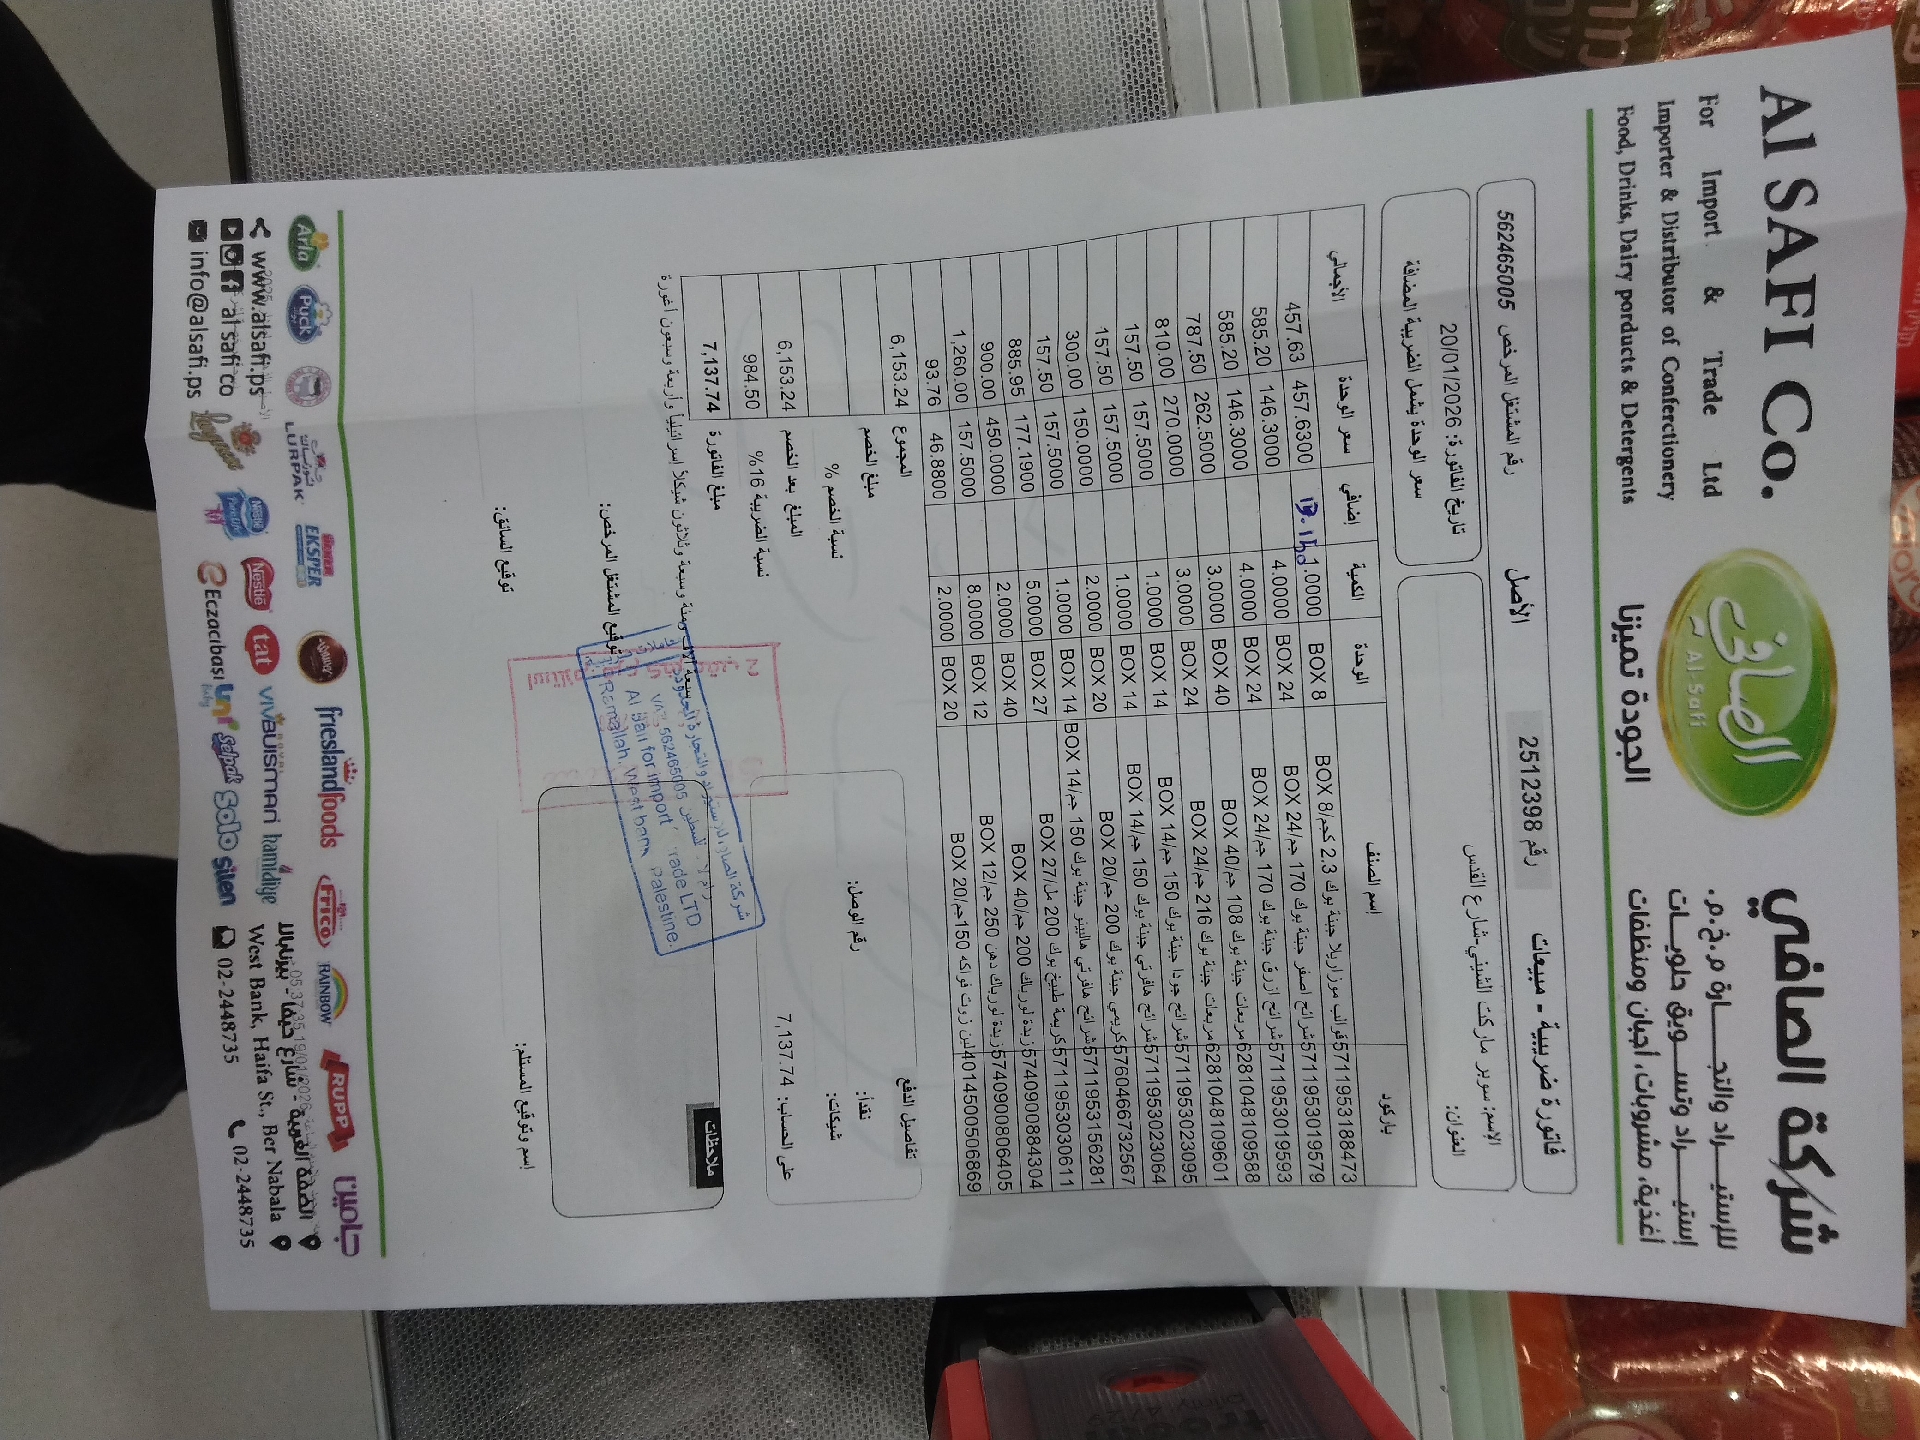 Al SAFI Co.
For Import & Trade Ltd
Importer & Distributor of Confectionery
Food, Drinks, Dairy porducts & Detergents
الصافي
Al-Safi
الجودة تميزنا
شركة الصافي
للإستيـــراد والتجـــارة م.خ.م.
إستيـــراد وتســـويق حلويـــات
أغذية، مشروبات، أجبان ومنظفات
فاتورة ضريبية - مبيعات رقم 2512398 الأصل رقم المشتغل المرخص 562465005
الإسم: سوبر ماركت الشيني-شارع القدس
العنوان:
تاريخ الفاتورة: 20/01/2026
سعر الوحدة يشمل الضريبة المضافة
باركود إسم الصنف الوحدة الكمية إضافي سعر الوحدة الأجمالي
5711953188473 قوالب موزاريلا جبنة بوك 2.3 كجم/BOX 8 BOX 8 1.0000 457.6300 457.63
5711953019579 شرائح اصفر جبنة بوك 170 جم/BOX 24 BOX 24 4.0000 146.3000 585.20
5711953019593 شرائح ازرق جبنة بوك 170 جم/BOX 24 BOX 24 4.0000 146.3000 585.20
6281048109588 مربعات جبنة بوك 108 جم/BOX 40 BOX 40 3.0000 262.5000 787.50
6281048109601 مربعات جبنة بوك 216 جم/BOX 24 BOX 24 3.0000 270.0000 810.00
5711953023095 شرائح جودا جبنة بوك 150 جم/BOX 14 BOX 14 1.0000 157.5000 157.50
5711953023064 شرائح هافرتي جبنة بوك 150 جم/BOX 14 BOX 14 1.0000 157.5000 157.50
5760466732567 كريمي جبنة بوك 200 جم/BOX 20 BOX 20 2.0000 150.0000 300.00
5711953156281 شرائح هافرتي هالبينو جبنة بوك 150 جم/BOX 14 BOX 14 1.0000 157.5000 157.50
5711953030611 كريمة طبيخ بوك 200 مل/BOX 27 BOX 27 5.0000 177.1900 885.95
5740900884304 زبدة لورباك 200 جم/BOX 40 BOX 40 2.0000 450.0000 900.00
5740900806405 زبدة لورباك دهن 250 جم/BOX 12 BOX 12 8.0000 157.5000 1,260.00
4014500506869 لبن زوت فواكه 150جم/BOX 20 BOX 20 2.0000 46.8800 93.76
تفاصيل الدفع
نقداً:
شيكات:
على الحساب: 7,137.74
رقم الوصل:
المجموع 6,153.24
مبلغ الخصم
نسبة الخصم %
المبلغ بعد الخصم 6,153.24
نسبة الضريبة 16% 984.50
مبلغ الفاتورة 7,137.74
سبعة آلاف ومئة وسبعة وثلاثون شيكلاً إسرائيلياً وأربعة وسبعون أغورة
ملاحظات
562465005
Al Safi for Import Trade LTD
Ramallah, West bank Palestine.
توقيع المشتغل المرخص:
إسم وتوقيع المستلم:
توقيع السائق:
Arla
Puck
LURPAK
EKSPER
frieslandfoods
Frico
RAINBOW
RUPP
جامبين
Nestle
Pure Life
Nestle
tat
VIVA
BUISMAN
hamidiye
Eczacıbaşı
uni
baby
Selpak
Solo
silen
05:37:35 19/01/2026
www.alsafi.ps
al safi co
info@alsafi.ps
الضفة الغربية - شارع حيفا - بيرنبالا
West Bank, Haifa St., Ber Nabala
02-2448735
02-2448735